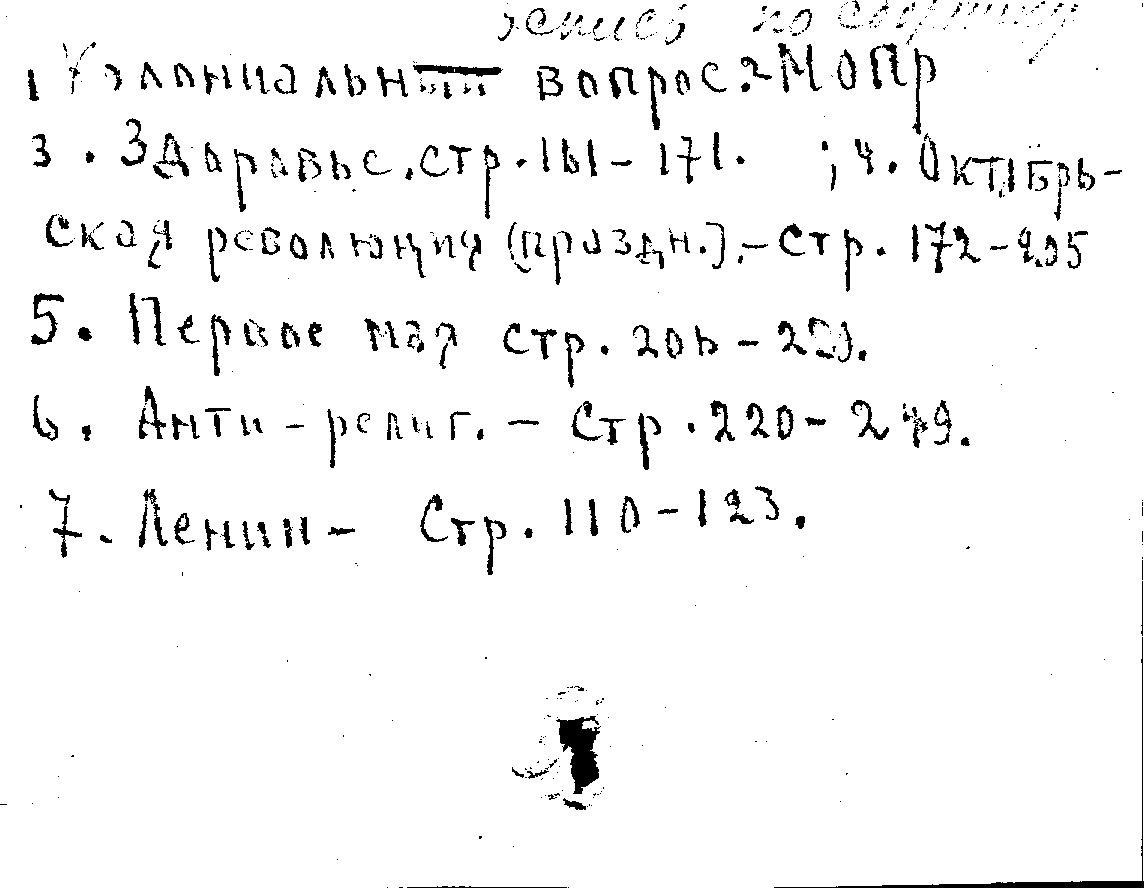 по сборнику
1 Колониальный вопрос. 2 МОПР
3. Здоровье. стр. 161 – 171. ; 4. Октябрь-
ская революция (праздн.). – стр. 172 – 205
5. Первое мая стр. 206 –
6. Анти – религ. – Стр. 220 – 249.
7. Ленин – Стр. 110 – 123.